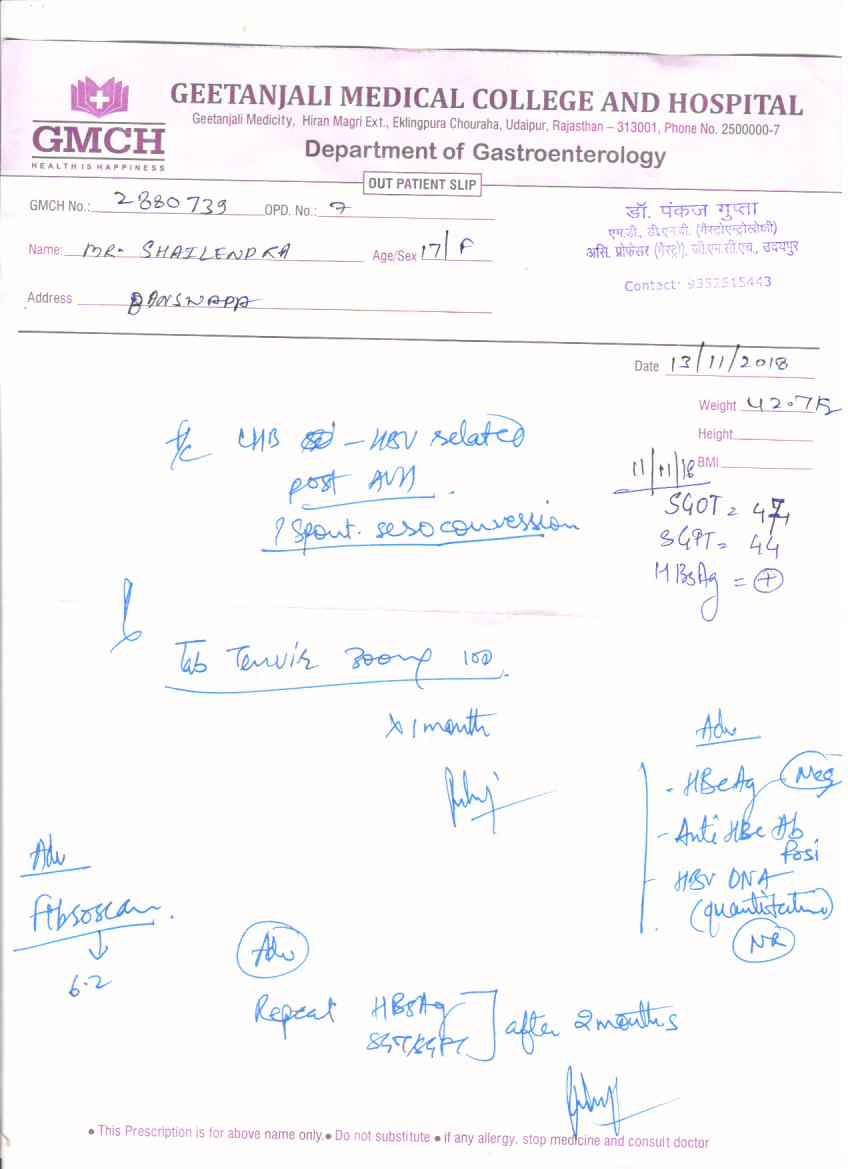 GEETANJALI MEDICAL COLLEGE AND HOSPITAL
Geetanjali Medicity, Hiran Magri Ext., Eklingpura Chouraha, Udaipur, Rajasthan – 313001, Phone No. 2500000-7
GMCH
HEALTH IS HAPPINESS
Department of Gastroenterology
OUT PATIENT SLIP
GMCH No.: 2880739 OPD. No.: 7
Name: MR. SHAILENDRA Age/Sex 17/F
Address BANSWARA
डॉ. पंकज गुप्ता
एम.डी., डी.एन.बी. (गैस्ट्रोएन्ट्रोलोजी)
असि. प्रोफेसर (गैस्ट्रो), जी.एम.सी.एच., उदयपुर
Contact: 9352515443
Date 13/11/2018
Weight 42.7
Height
BMI
11/11/18
SGOT = 47
SGPT = 44
HBsAg = +
CHB - HBV related
post AVH
? Spont. seroconversion
Tab Tenvir 300mg
x 1 month
Adv
- HBeAg - Neg
- Anti HBe Ab Posi
- HBV DNA
(quantitative)
NR
Adv
Fibroscan.
↓
6.2
Adv
Repeat HBsAg
SGOT/SGPT
after 2 months
• This Prescription is for above name only. • Do not substitute • if any allergy, stop medicine and consult doctor